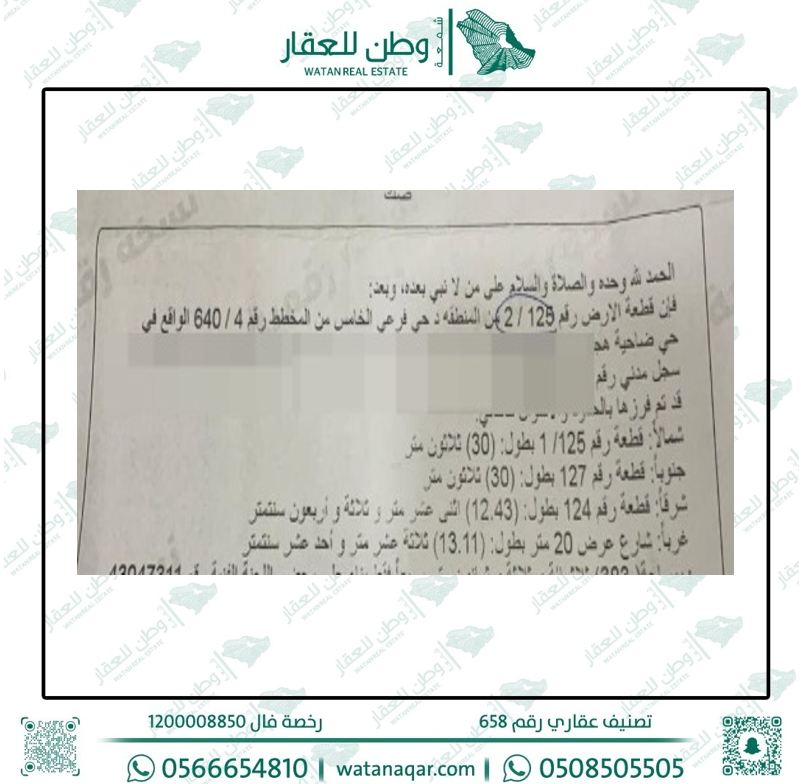 وطن للعقار
شمعة
WATAN REAL ESTATE
صك
الحمد لله وحده والصلاة والسلام على من لا نبي بعده، وبعد:
فإن قطعة الارض رقم 125 / 2 من المنطقه د حي فرعي الخامس من المخطط رقم 4 / 640 الواقع في
حي ضاحية
سجل مدني رقم
قد تم فرزها
شمالاً: قطعة رقم 125/ 1 بطول: (30) ثلاثون متر
جنوباً: قطعة رقم 127 بطول: (30) ثلاثون متر
شرقاً: قطعة رقم 124 بطول: (12.43) اثنى عشر متر و ثلاثة و أربعون سنتمتر
غرباً: شارع عرض 20 متر بطول: (13.11) ثلاثة عشر متر و أحد عشر سنتمتر
تصنيف عقاري رقم 658
رخصة فال 1200008850
0566654810 | watanaqar.com | 0508505505